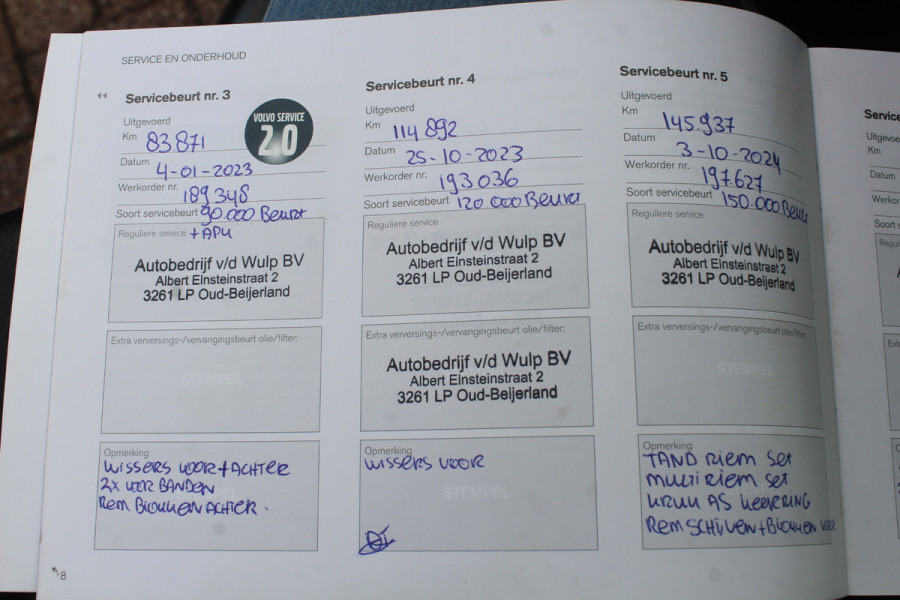 SERVICE EN ONDERHOUD
Servicebeurt nr. 3
VOLVO SERVICE
2.0
Uitgevoerd
Km 83871
Datum 4-01-2023
Werkorder nr. 189348
Soort servicebeurt 90.000 Beurt
Reguliere service + APK
Autobedrijf v/d Wulp BV
Albert Einsteinstraat 2
3261 LP Oud-Beijerland
Extra verversings-/vervangingsbeurt olie/filter:
STEMPEL
Opmerking
WISSERS VOOR + ACHTER
2x VOOR BANDEN
Rem BLOKKEN ACHTER.
8
Servicebeurt nr. 4
Uitgevoerd
Km 114892
Datum 25-10-2023
Werkorder nr. 193036
Soort servicebeurt 120 000 Beurt
Reguliere service
Autobedrijf v/d Wulp BV
Albert Einsteinstraat 2
3261 LP Oud-Beijerland
Extra verversings-/vervangingsbeurt olie/filter:
Autobedrijf v/d Wulp BV
Albert Einsteinstraat 2
3261 LP Oud-Beijerland
Opmerking
WISSERS VOOR
STEMPEL
Servicebeurt nr. 5
Uitgevoerd
Km 145.937
Datum 3-10-2024
Werkorder nr. 197.627
Soort servicebeurt 150.000 Beurt
Reguliere service
Autobedrijf v/d Wulp BV
Albert Einsteinstraat 2
3261 LP Oud-Beijerland
Extra verversings-/vervangingsbeurt olie/filter:
STEMPEL
Opmerking
TAND riem set
multi riem set
KRUK AS KEERRING
Rem SCHIJVEN + BLOKKEN VOOR
Service
Uitgevoe
Km
Datum
Werkor
Soort s
Regul
Ext